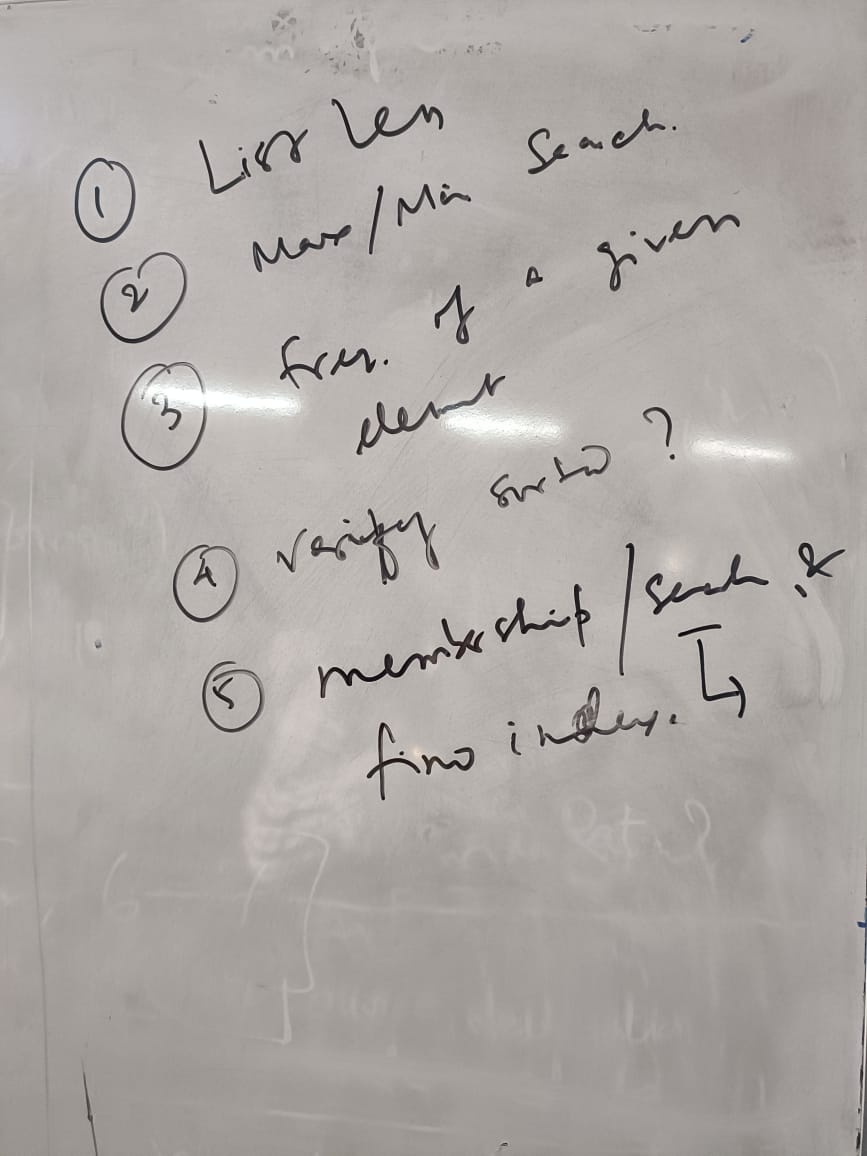 ① List Len
② Max/Min Search.
③ freq. of a given
element
④ Verify sorted ?
⑤ membership/search &
find index.